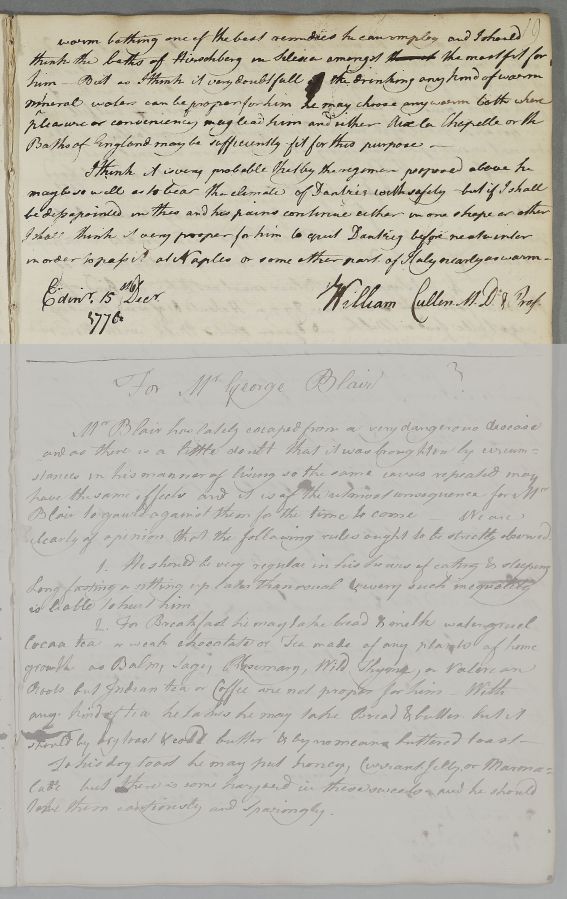 19
warm bathing one of the best remedies he can employ and I should
think the baths of Hirschberg in Silesia amongst the most fit for
him – But as I think it very doubtfull if the drinking any kind of warm
mineral water can be proper for him he may choose any warm bath where
pleasure or conveniency may lead him and either Aix la Chapelle or the
Baths of England may be sufficiently fit for this purpose –
I think it is very probable that by the regimen proposed above he
may be so well as to bear the climate of Dantzig with safety but if I shall
be dissapointed in this and his pains continue either in one shape or other
I shall think it very proper for him to quit Dantzig before next winter
in order to pass it at Naples or some other part of Italy nearly as warm –
Edinr. 15 Decr.
1776
William Cullen M.D. & Prof.
For Mr. George Blair
3
Mr Blair has lately escaped from a very dangerous disease
and as there is a little doubt that it was brought on by circum=
stances in his manner of living so the same causes repeated may
have the same effects and it is of the utmost consequence for Mr
Blair to guard against them for the time to come We are
clearly of opinion that the following rules ought to be strictly observed
1. He should be very regular in his hours of eating & sleeping
Long fasting or sitting up later than usual & every such inequality
is liable to hurt him
2. For Breakfast he may take bread & milk water gruel
Cocoa tea or weak chocolate or Tea made of any plants of home
growth as Balm, Sage, Rosemary, Wild Thyme, or Valerian
Roots but Indian tea or Coffee are not proper for him – With
any kind of tea he takes he may take Bread & butter but it
should by dry toast & cold butter & by no means buttered toast
To his dry toast he may put honey, Currant Jelly, or Marma=
lade but there is some hazard in these sweets and he should
take them cautiously and sparingly.